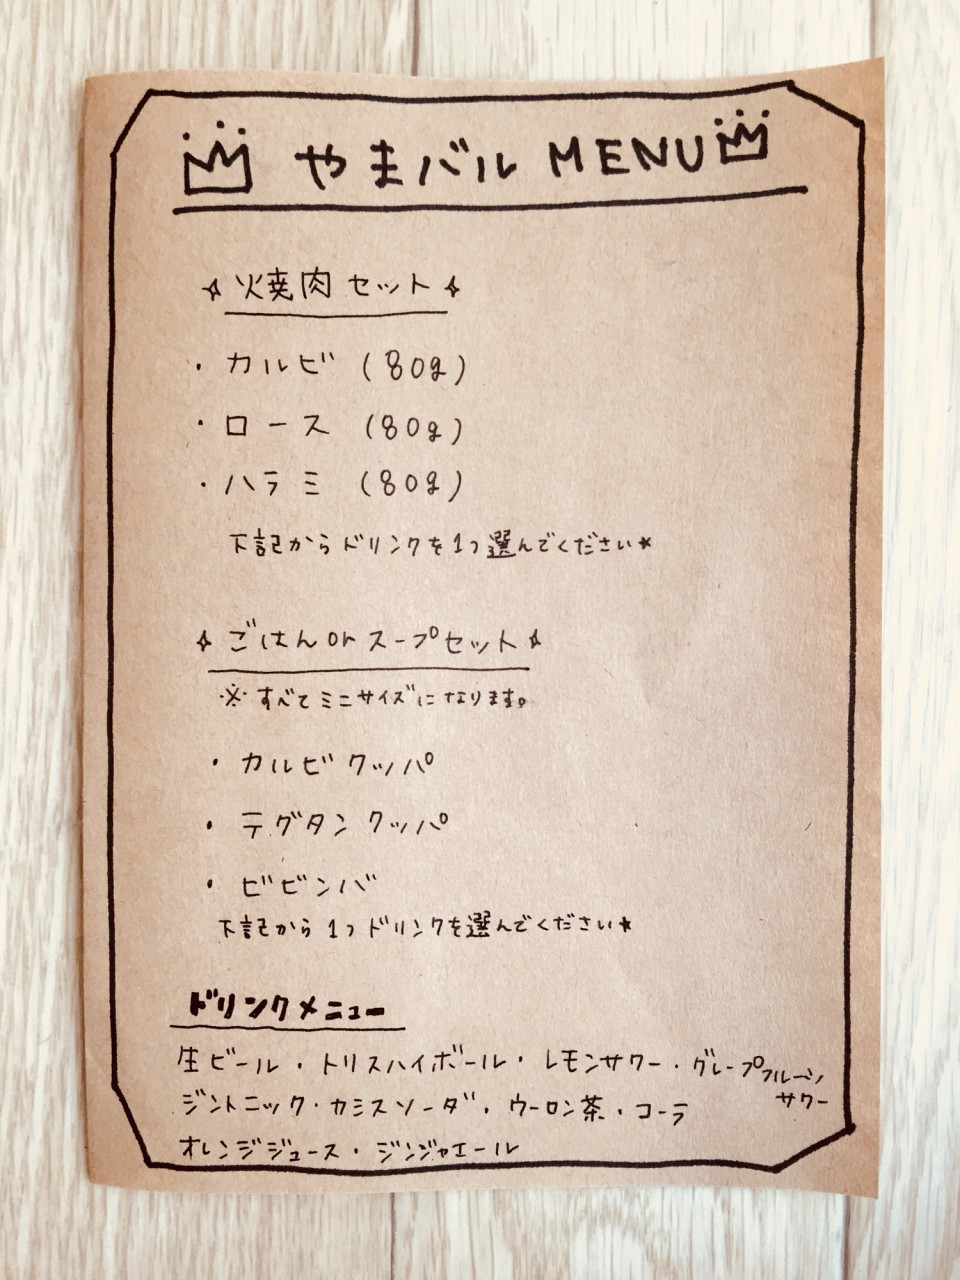 やまバル MENU
焼肉セット
・カルビ (80g)
・ロース (80g)
・ハラミ (80g)
下記からドリンクを1つ選んでください★
ごはんorスープセット
※すべてミニサイズになります。
・カルビクッパ
・テグタンクッパ
・ビビンバ
下記から1つドリンクを選んでください★
ドリンクメニュー
生ビール・トリスハイボール・レモンサワー・グレープフルーツサワー
ジントニック・カシスソーダ・ウーロン茶・コーラ
オレンジジュース・ジンジャエール